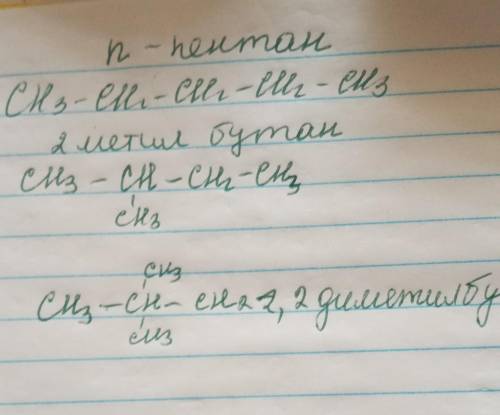 n - пентан
CH3 - CH2 - CH2 - CH2 - CH3
2 метил бутан
CH3 - CH - CH2 - CH3
CH3
CH3
CH3 - CH - CH2 2, 2 диметилбу
CH3